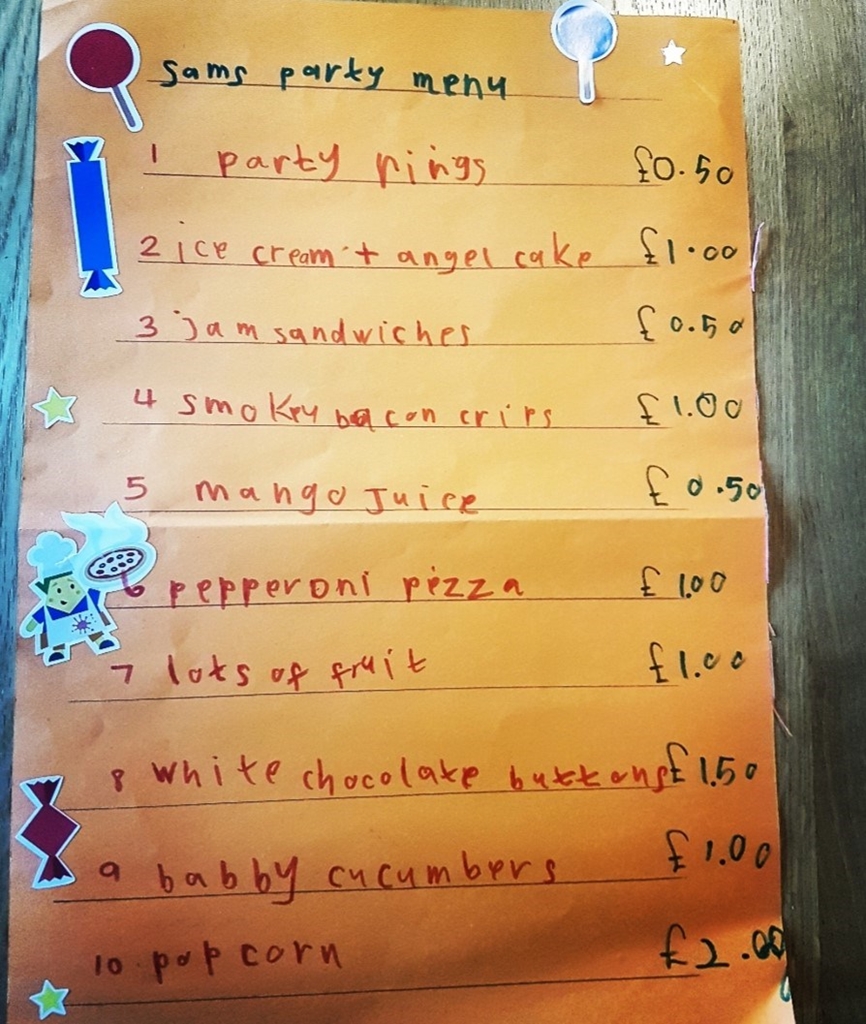 sams party menu
1 party rings £0.50
2 ice cream + angel cake £1.00
3 jam sandwiches £0.50
4 smokey bacon crips £1.00
5 mango Juice £0.50
6 pepperoni pizza £1.00
7 lots of fruit £1.00
8 white chocolate buttons £1.50
9 babby cucumbers £1.00
10 pop corn £2.00